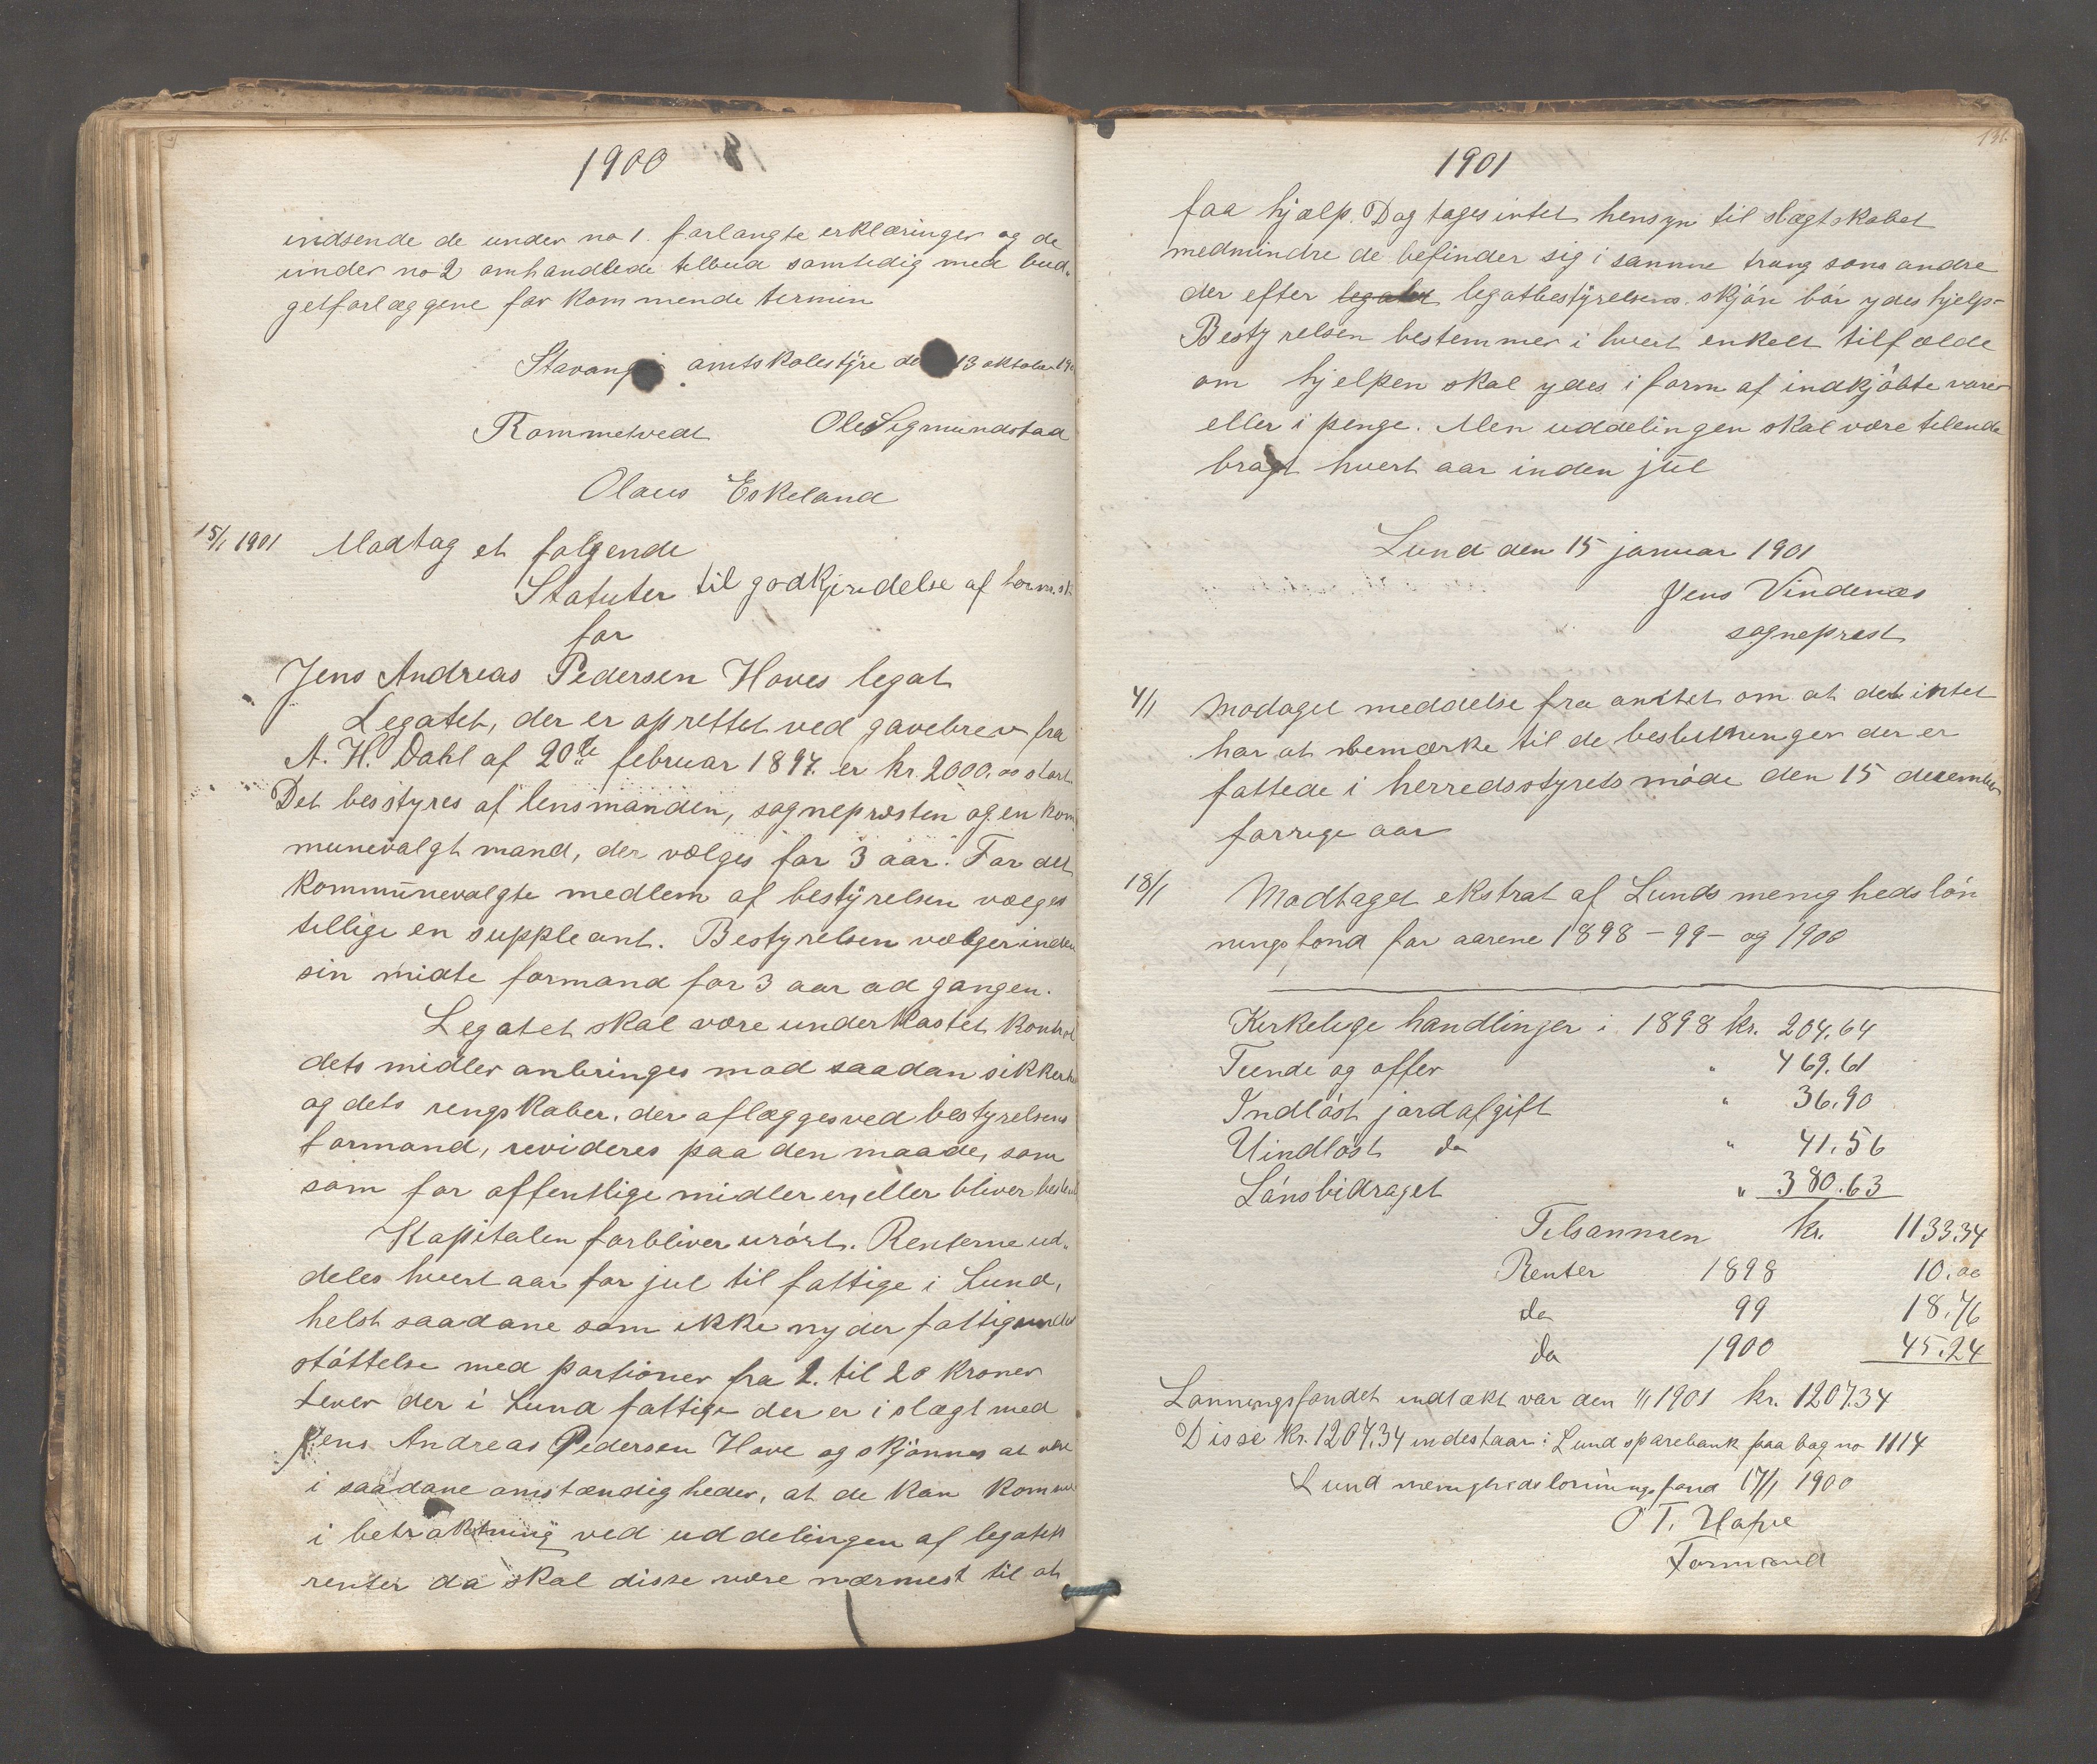 1900
indsende de under no 1. forlangte erklæringer og de
under no 2 omhandlede tilbud samtidig med bud-
getforlæggene for kommende termin
Stavang amtskolestyre de 13 oktober 19
Rommetvedt Ole Sigmundstad
Olaus Eskeland
15/1 1901 Modtag et folgende
Statuter til godkjendelse af herr. st.
for
Jens Andreas Pedersen Hoves legat
Legatet, der er oprettet ved gavebrev fra
A. H. Dahl af 20de februar 1897. er kr. 2000.00 stort
Det bestyres af lensmanden, sognepresten og en kom
munevalgt mand, der vælges for 3 aar. For det
kommunevalgte medlem af bestyrelsen vælges
tillige en suppleant. Bestyrelsen vælger inden
sin midte formand for 3 aar ad gangen.
Legatet skal være underkastet kontrol
dets midler anbringes mod saadan sikkerhe
og dets rengskaber, der aflægges ved bestyrelsens
formand, revideres paa den maade, som
som for offentlige midler er, eller bliver bestemt
Kapitalen forbliver urórt. Renterne ud-
deles hvert aar for jul til fattige i Lund,
helst saadane som ikke nyder fattigunder
stóttelse med portioner fra 2. til 20 kroner
Lever der i Lund fattige der er i slægt med
Jens Andreas Pedersen Hove og skjønnes at være
i saadane omstændigheder, at de kan komme
i betraktning ved uddelingen af legatets
renter da skal disse være nærmest til at
136
1901
faa hjælp. Dog tages intet hensyn til slægtskabet
medmindre de befinder sig i samme trang som andre
der efter legatet legatbestyrelsens skjón bór ydes hjelp-
Bestyrelsen bestemmer i hvert enkelt tilfælde
om hjelpen skal ydes i form af indkjóbte varer
eller i penge. Men uddelingen skal være tilende
bragt hvert aar inden jul
Lund den 15 januar 1901
Jens Vindenæs
sogneprest
4/1 Modaget meddelse fra amtet om at det intet
har at bemærke til de beslutninger der er
fattede i herredsstyrets móde den 15 december
forrige aar
18/1 Modtaget ekstrat af Lunds menighedslón
ningsfond for aarene 1898 - 99 - og 1900
Kirkelige handlinger i 1898 kr. 204,64
Teende og offer " 469.61
Indlóst jordafgift " 36.90
Uindlóst do " 41.56
Lónsbidraget " 380.63
Tilsammen kr. 1133.34
Renter 1898 10.00
do 99 18.76
do 1900 45.24
Lonningsfondet indtækt var den 1/1 1901 kr. 1207.34
Disse kr. 1207.34 indestaar i Lund sparebank paa bog no 1114
Lund menighedslonningsfond 17/1 1900
O T. Hafve
Formand